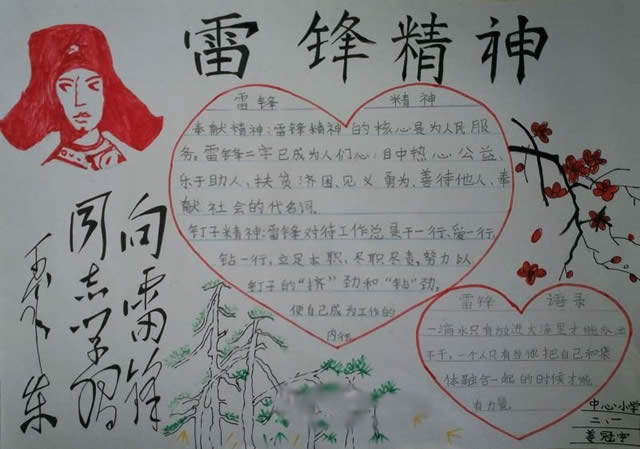 雷锋精神
向雷锋
同志学习
毛泽东
雷锋 精神
奉献精神:雷锋精神的核心是为人民服
务。雷锋二字已成为人们心目中热心公益、
乐于助人、扶贫济困、见义勇为、善待他人、奉
献社会的代名词。
钉子精神:雷锋对待工作总是干一行,爱一行,
钻一行,立足本职、尽职尽责。努力以
钉子的“挤”劲和“钻”劲,
使自己成为工作的
内行。
雷锋 语录
一滴水只有放进大海里才能永远
不干,一个人只有当他把自己和集
体融合一起的时候才能
有力量。
中心小学
姜冠